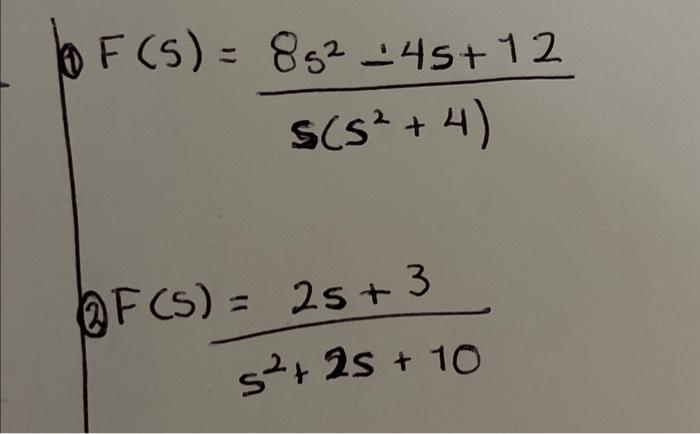 ① F(S) = 8s² - 4s + 12
s(s² + 4)
② F(S) = 2s + 3
s² + 2s + 10